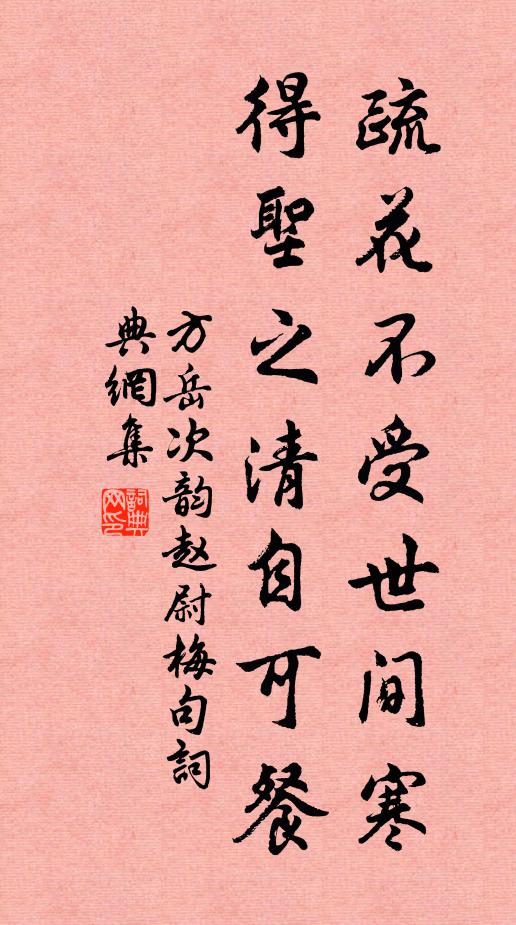 疏花不受世間寒
得聖之清自可餐
方岳次韵赵尉梅句詞
典網集
詞典網印